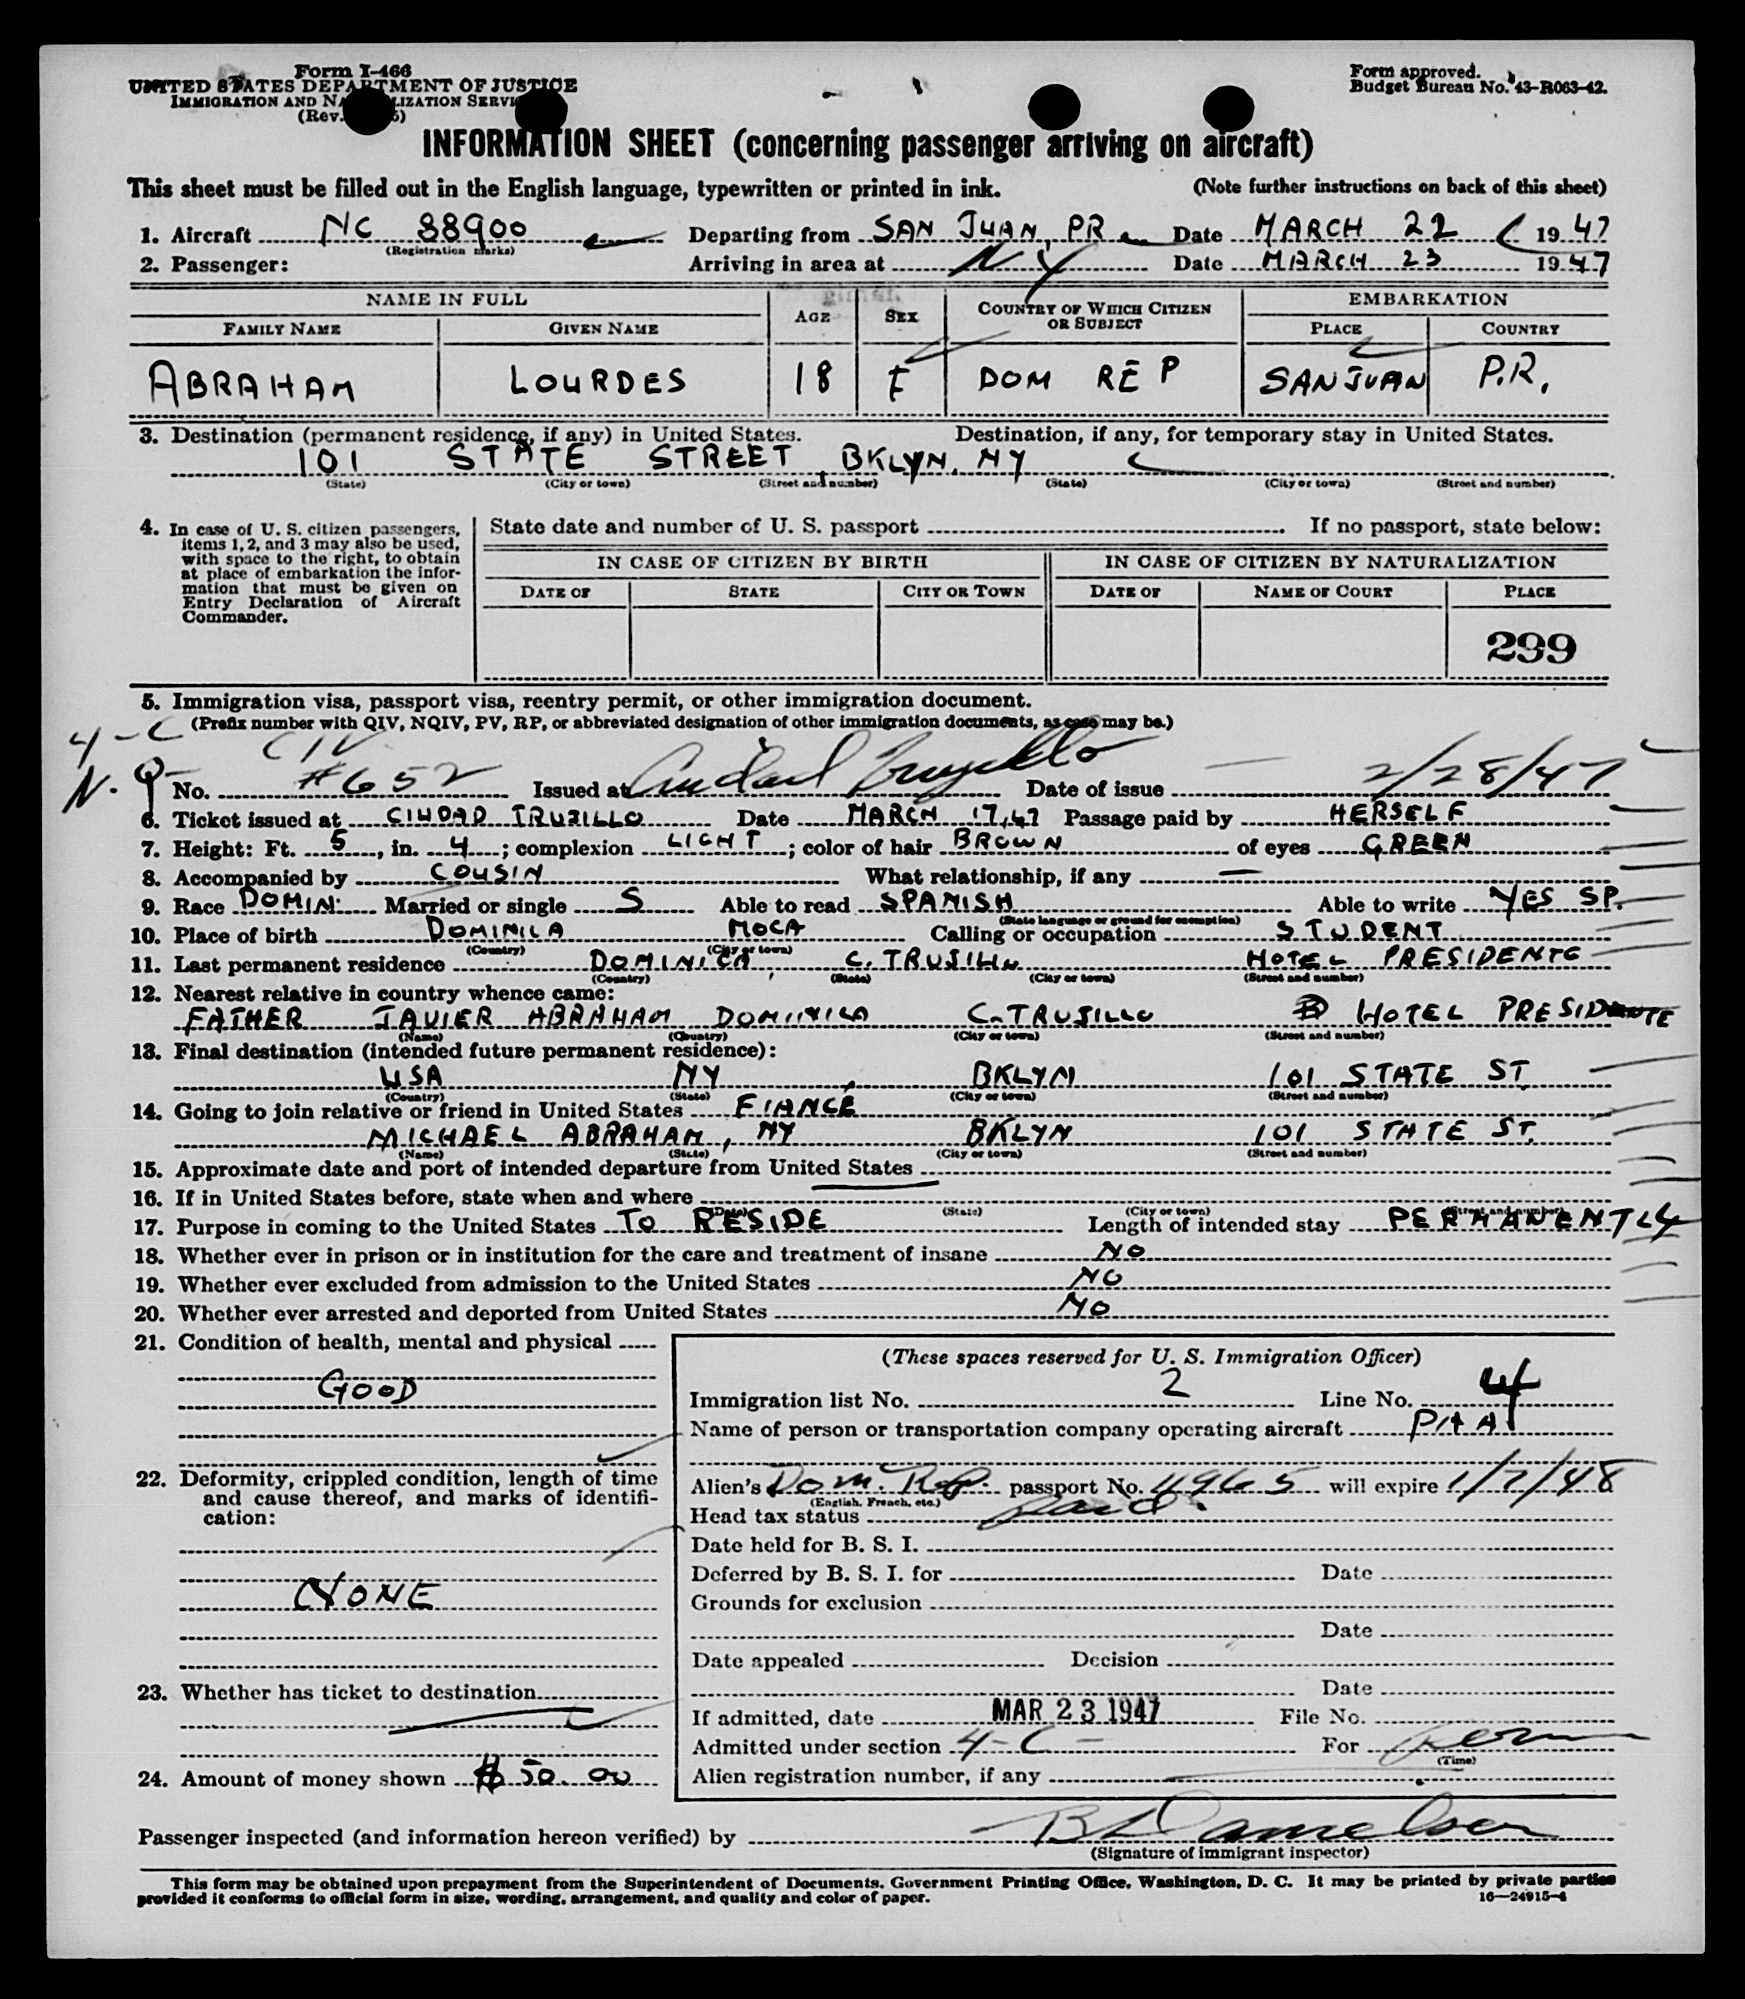 Form I-466
UNITED STATES DEPARTMENT OF JUSTICE
IMMIGRATION AND NATURALIZATION SERVICE
(Rev.
Form approved.
Budget Bureau No. 43-R063-42.
INFORMATION SHEET (concerning passenger arriving on aircraft)
This sheet must be filled out in the English language, typewritten or printed in ink. (Note further instructions on back of this sheet)
1. Aircraft NC 88900 Departing from SAN JUAN, PR Date MARCH 22 1947
(Registration marks)
2. Passenger: Arriving in area at NY Date MARCH 23 1947
NAME IN FULL AGE SEX COUNTRY OF WHICH CITIZEN OR SUBJECT EMBARKATION
FAMILY NAME GIVEN NAME PLACE COUNTRY
ABRAHAM LOURDES 18 F DOM REP SAN JUAN P.R.
3. Destination (permanent residence, if any) in United States. Destination, if any, for temporary stay in United States.
101 STATE STREET, BKLYN. NY
(State) (City or town) (Street and number) (State) (City or town) (Street and number)
4. In case of U. S. citizen passengers, items 1, 2, and 3 may also be used, with space to the right, to obtain at place of embarkation the information that must be given on Entry Declaration of Aircraft Commander.
State date and number of U. S. passport If no passport, state below:
IN CASE OF CITIZEN BY BIRTH IN CASE OF CITIZEN BY NATURALIZATION
DATE OF STATE CITY OR TOWN DATE OF NAME OF COURT PLACE
299
5. Immigration visa, passport visa, reentry permit, or other immigration document.
(Prefix number with QIV, NQIV, PV, RP, or abbreviated designation of other immigration documents, as case may be.)
4-C
N. Q- CIV
No. #652 Issued at Ciudad Trujillo Date of issue 2/28/47
6. Ticket issued at CIUDAD TRUJILLO Date MARCH 17, 47 Passage paid by HERSELF
7. Height: Ft. 5, in. 4; complexion LIGHT; color of hair BROWN of eyes GREEN
8. Accompanied by COUSIN What relationship, if any —
9. Race DOMIN. Married or single S Able to read SPANISH Able to write YES SP.
(State language or ground for exemption)
10. Place of birth DOMINICA MOCA Calling or occupation STUDENT
(Country) (City or town)
11. Last permanent residence DOMINICA, C. TRUJILLO HOTEL PRESIDENTE
(Country) (State) (City or town) (Street and number)
12. Nearest relative in country whence came:
FATHER JAVIER ABRAHAM DOMINICA C. TRUJILLO HOTEL PRESIDENTE
(Name) (Country) (City or town) (Street and number)
13. Final destination (intended future permanent residence):
USA NY, BKLYN 101 STATE ST.
(Country) (State) (City or town) (Street and number)
14. Going to join relative or friend in United States FIANCE
MICHAEL ABRAHAM, NY BKLYN 101 STATE ST.
(Name) (State) (City or town) (Street and number)
15. Approximate date and port of intended departure from United States
16. If in United States before, state when and where
(Date) (State) (City or town) (Street and number)
17. Purpose in coming to the United States TO RESIDE Length of intended stay PERMANENTLY
18. Whether ever in prison or in institution for the care and treatment of insane NO
19. Whether ever excluded from admission to the United States NO
20. Whether ever arrested and deported from United States NO
21. Condition of health, mental and physical
GOOD
22. Deformity, crippled condition, length of time and cause thereof, and marks of identification:
NONE
23. Whether has ticket to destination
24. Amount of money shown $50.00
(These spaces reserved for U. S. Immigration Officer)
Immigration list No. 2 Line No. 4
Name of person or transportation company operating aircraft PAA
Alien's Dom. Rep. passport No. 4965 will expire 1/7/48
(English, French, etc.)
Head tax status Paid.
Date held for B. S. I.
Deferred by B. S. I. for Date
Grounds for exclusion
Date
Date appealed Decision
Date
If admitted, date MAR 23 1947 File No.
Admitted under section 4-C- For Perm
(Time)
Alien registration number, if any
Passenger inspected (and information hereon verified) by
(Signature of immigrant inspector)
This form may be obtained upon prepayment from the Superintendent of Documents, Government Printing Office, Washington, D. C. It may be printed by private parties
provided it conforms to official form in size, wording, arrangement, and quality and color of paper. 16—24915-4